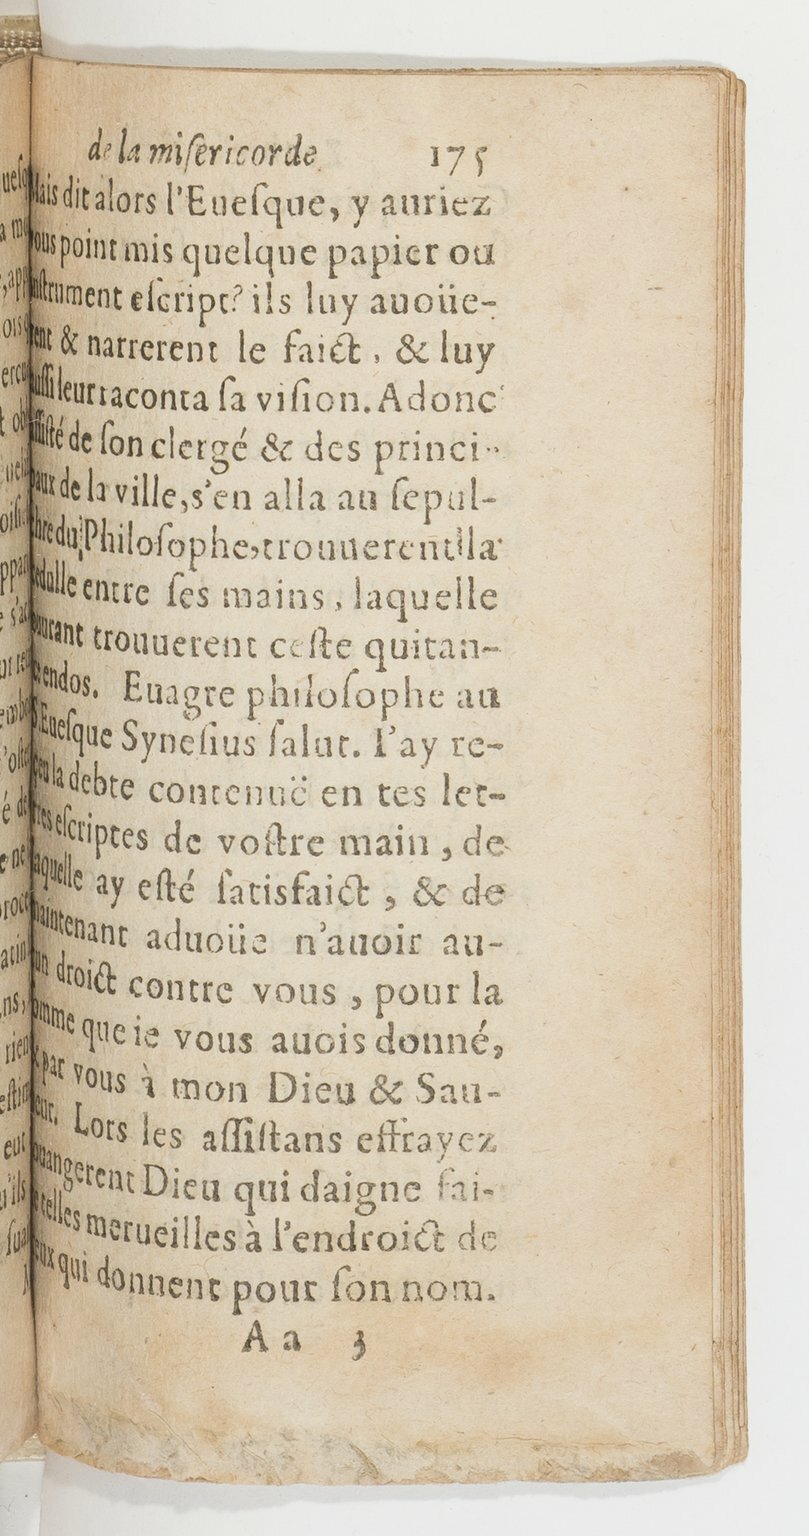 de la miſericorde 175
ais dit alors l'Eueſque, y auriez
ous point mis quelque papier ou
ſtrument eſcript? ils luy auoüe-
ent & narrerent le faict, & luy
uſſi leur raconta ſa viſion. Adonc
ſiſté de ſon clergé & des princi-
aux de la ville, s'en alla au ſepul-
hre du Philoſophe, trouuerent la
edulle entre ſes mains, laquelle
urant trouuerent ceſte quitan-
endos. Euagre philoſophe au
Eueſque Syneſius ſalut. I'ay re-
la debte contenuë en tes let-
res eſcriptes de voſtre main, de
aquelle ay eſté ſatisfaict, & de
aintenant aduoüe n'auoir au-
un droict contre vous, pour la
omme que ie vous auois donné,
par vous à mon Dieu & Sau-
eur. Lors les aſſiſtans effrayez
angerent Dieu qui daigne fai-
telles merueilles à l'endroict de
eux qui donnent pour ſon nom.
A a 3